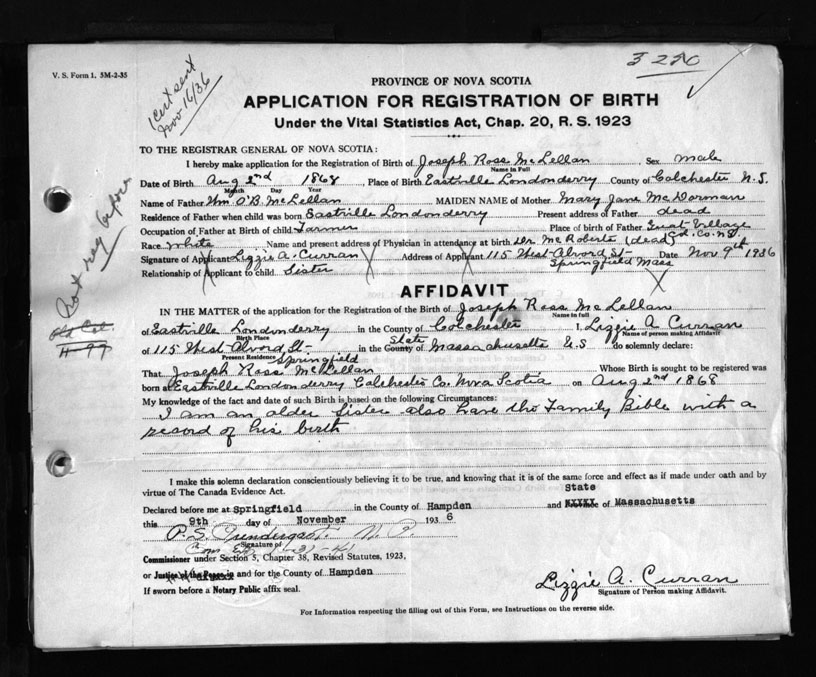 3220
V. S. Form 1. 5M-2-35
Cert sent
Nov 16/36
PROVINCE OF NOVA SCOTIA
APPLICATION FOR REGISTRATION OF BIRTH
Under the Vital Statistics Act, Chap. 20, R. S. 1923
TO THE REGISTRAR GENERAL OF NOVA SCOTIA:
I hereby make application for the Registration of Birth of Joseph Ross McLellan Sex male
Name in Full
Date of Birth Aug 2nd 1868, Place of Birth Eastville Londonderry County of Colchester N.S.
Month Day Year
Name of Father Wm O'B. McLellan MAIDEN NAME of Mother Mary Jane McDorman
Residence of Father when child was born Eastville Londonderry Present address of Father dead
Occupation of Father at Birth of child Farmer Place of birth of Father Great Village
Col. Co. N.S.
Race White Name and present address of Physician in attendance at birth Dr McRoberts (dead)
Signature of Applicant Lizzie A. Curran Address of Applicant 115 West Alvord St Date Nov 9th 1936
Springfield Mass
Relationship of Applicant to child Sister
Not reg before
AFFIDAVIT
IN THE MATTER of the application for the Registration of the Birth of Joseph Ross McLellan
Name in full
of Eastville Londonderry in the County of Colchester I, Lizzie A Curran
Birth Place Name of person making Affidavit
of 115 West Alvord St in the County of State Massachusetts U.S do solemnly declare:
Present Residence Springfield
That Joseph Ross McLellan Whose Birth is sought to be registered was
born at Eastville Londonderry Colchester Co. Nova Scotia on Aug 2nd 1868
My knowledge of the fact and date of such Birth is based on the following Circumstances:
I am an older sister also have the Family Bible with a
record of his birth
I make this solemn declaration conscientiously believing it to be true, and knowing that it is of the same force and effect as if made under oath and by
virtue of The Canada Evidence Act.
State
Declared before me at Springfield in the County of Hampden and XXXX of Massachusetts
this 9th day of November 1936
P. S. Prendergast N. P.
Signature of
Com Ex
Commissioner under Section 5, Chapter 38, Revised Statutes, 1923.
or Justice of the Peace in and for the County of Hampden
If sworn before a Notary Public affix seal.
Lizzie A. Curran
Signature of Person making Affidavit.
For Information respecting the filling out of this Form, see Instructions on the reverse side.